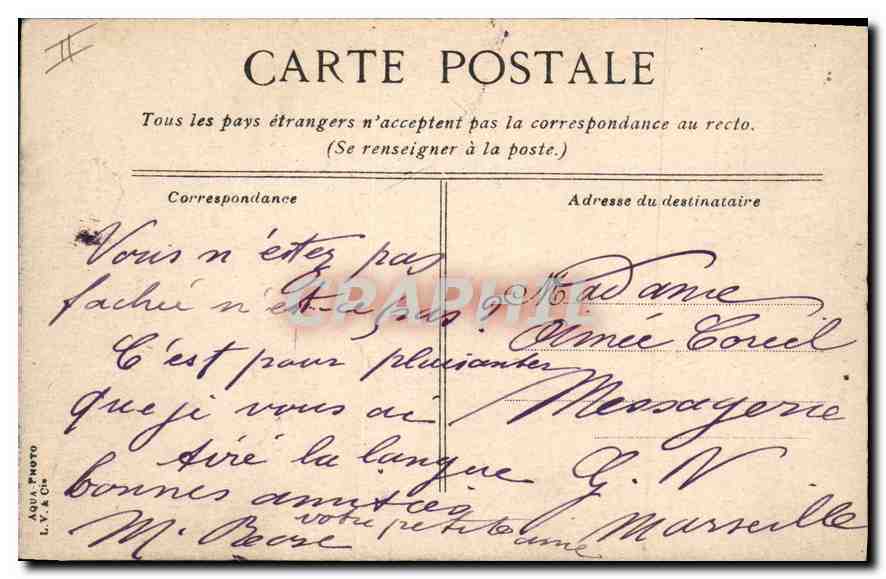 II
CARTE POSTALE
Tous les pays étrangers n'acceptent pas la correspondance au recto.
(Se renseigner à la poste.)
Correspondance
Vous n'étez pas
fachée n'est-ce pas?
C'est pour plaisanter
que je vous ai
tiré la langue
bonnes amitiés
votre petite amie
M.
Adresse du destinataire
Madame
Aimée Coreil
Messagerie
G. V
Marseille
AQUA-PHOTO
L. V. & Cie
CPAPHIL